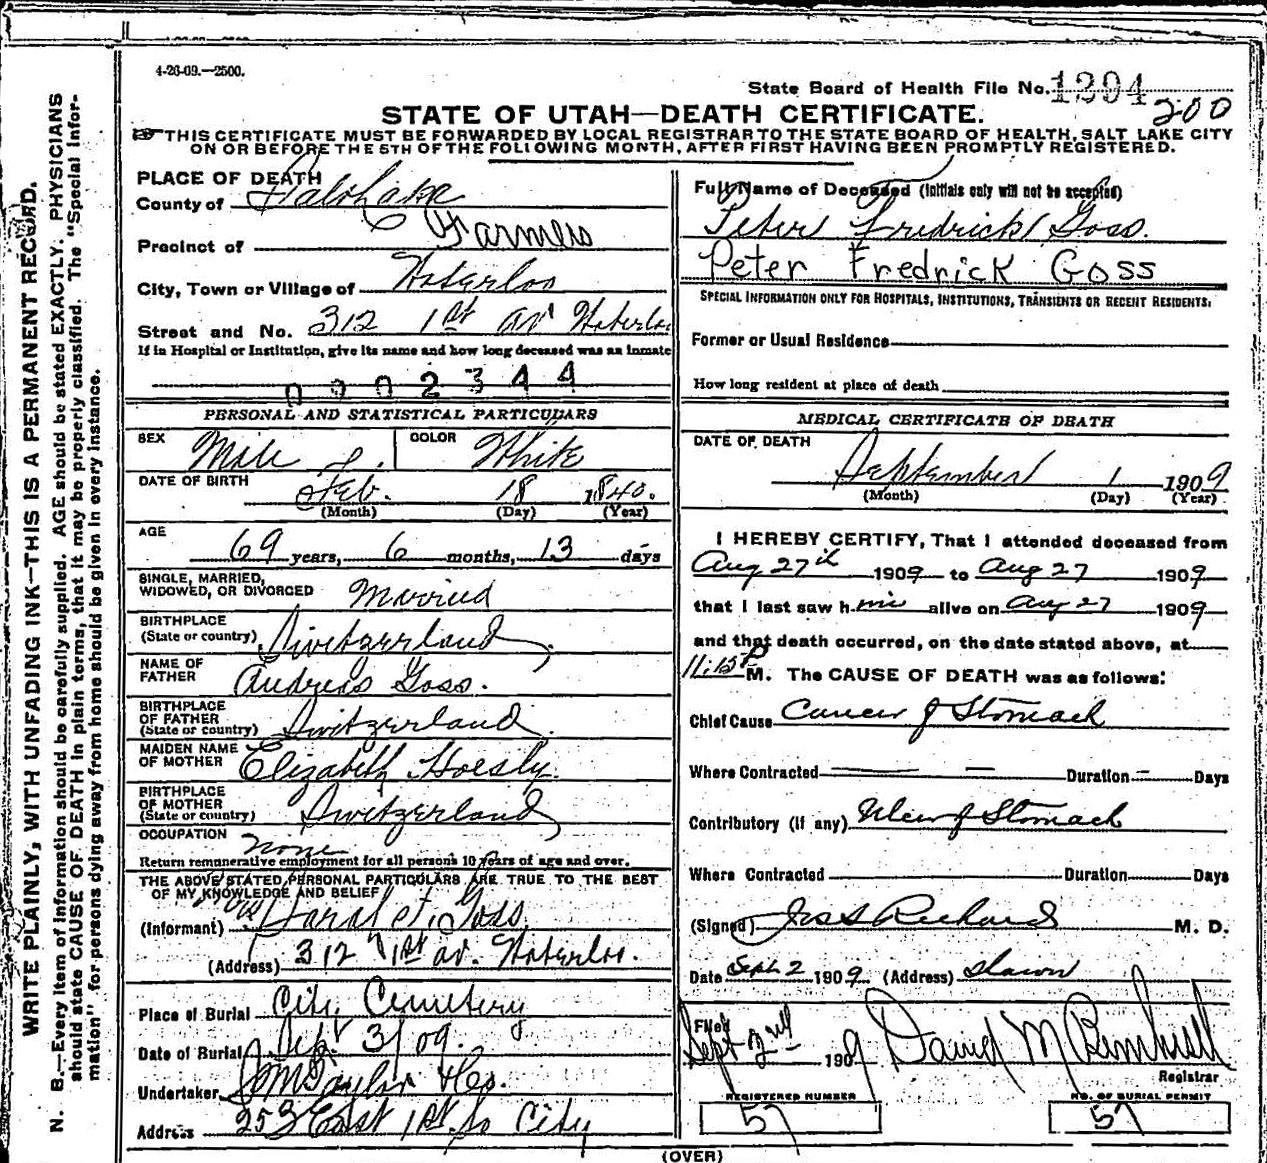 4-26-09.—2500.
State Board of Health File No. 1394
200
STATE OF UTAH—DEATH CERTIFICATE.
THIS CERTIFICATE MUST BE FORWARDED BY LOCAL REGISTRAR TO THE STATE BOARD OF HEALTH, SALT LAKE CITY
ON OR BEFORE THE 5TH OF THE FOLLOWING MONTH, AFTER FIRST HAVING BEEN PROMPTLY REGISTERED.
WRITE PLAINLY, WITH UNFADING INK—THIS IS A PERMANENT RECORD.
N. B.—Every item of information should be carefully supplied. AGE should be stated EXACTLY. PHYSICIANS
should state CAUSE OF DEATH in plain terms, that it may be properly classified. The "Special Infor-
mation" for persons dying away from home should be given in every instance.
PLACE OF DEATH
County of Salt Lake
Precinct of Farmers
City, Town or Village of Waterloo
Street and No. 312 1st av Waterloo
If in Hospital or Institution, give its name and how long deceased was an inmate
0002344
PERSONAL AND STATISTICAL PARTICULARS
SEX Male
COLOR White
DATE OF BIRTH Feb. 18 1840.
(Month) (Day) (Year)
AGE
69 years, 6 months, 13 days
SINGLE, MARRIED,
WIDOWED, OR DIVORCED Married
BIRTHPLACE
(State or country) Switzerland
NAME OF
FATHER Andreas Goss.
BIRTHPLACE
OF FATHER
(State or country) Switzerland
MAIDEN NAME
OF MOTHER Elizabeth Hoesly.
BIRTHPLACE
OF MOTHER
(State or country) Switzerland
OCCUPATION none
Return remunerative employment for all persons 10 years of age and over.
THE ABOVE STATED PERSONAL PARTICULARS ARE TRUE TO THE BEST
OF MY KNOWLEDGE AND BELIEF
(Informant) Mrs Sarah F. Goss
(Address) 312 1st av. Waterloo.
Place of Burial City Cemetery
Date of Burial Sept 3/09.
Undertaker S M Taylor & Co.
Address 253 East 1st So City
Full Name of Deceased (Initials only will not be accepted)
Peter Fredrick Goss.
Peter Fredrick Goss
SPECIAL INFORMATION ONLY FOR HOSPITALS, INSTITUTIONS, TRANSIENTS OR RECENT RESIDENTS.
Former or Usual Residence
How long resident at place of death
MEDICAL CERTIFICATE OF DEATH
DATE OF DEATH
September 1 1909
(Month) (Day) (Year)
I HEREBY CERTIFY, That I attended deceased from
Aug 27th 1909 to Aug 27 1909
that I last saw him alive on Aug 27 1909
and that death occurred, on the date stated above, at
11:15 P M. The CAUSE OF DEATH was as follows:
Chief Cause Cancer of Stomach
Where Contracted — — Duration — Days
Contributory (if any) Ulcer of Stomach
Where Contracted Duration Days
(Signed) Jos S Richards M. D.
Date Sept 2 1909 (Address)
Filed Sept 2nd 1909 David M
Registrar
REGISTERED NUMBER NO. OF BURIAL PERMIT
57 57
(OVER)